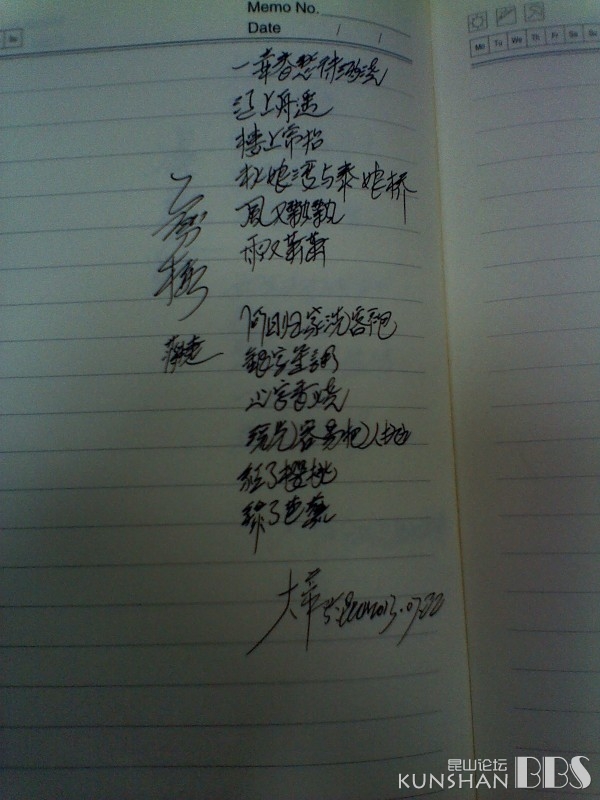 Memo No.
Date / /
Mo Tu We Th Fr Sa Su
Su
一剪梅
蒋捷
春愁待酒浇
江上舟遥
楼上帘招
秋娘湾与泰娘桥
風又飘飘
雨又萧萧
何日归家洗客袍
银字笙调
心字香烧
流光容易把人抛
红了樱桃
绿了芭蕉
2013.07.22
昆山论坛
KUNSHAN BBS